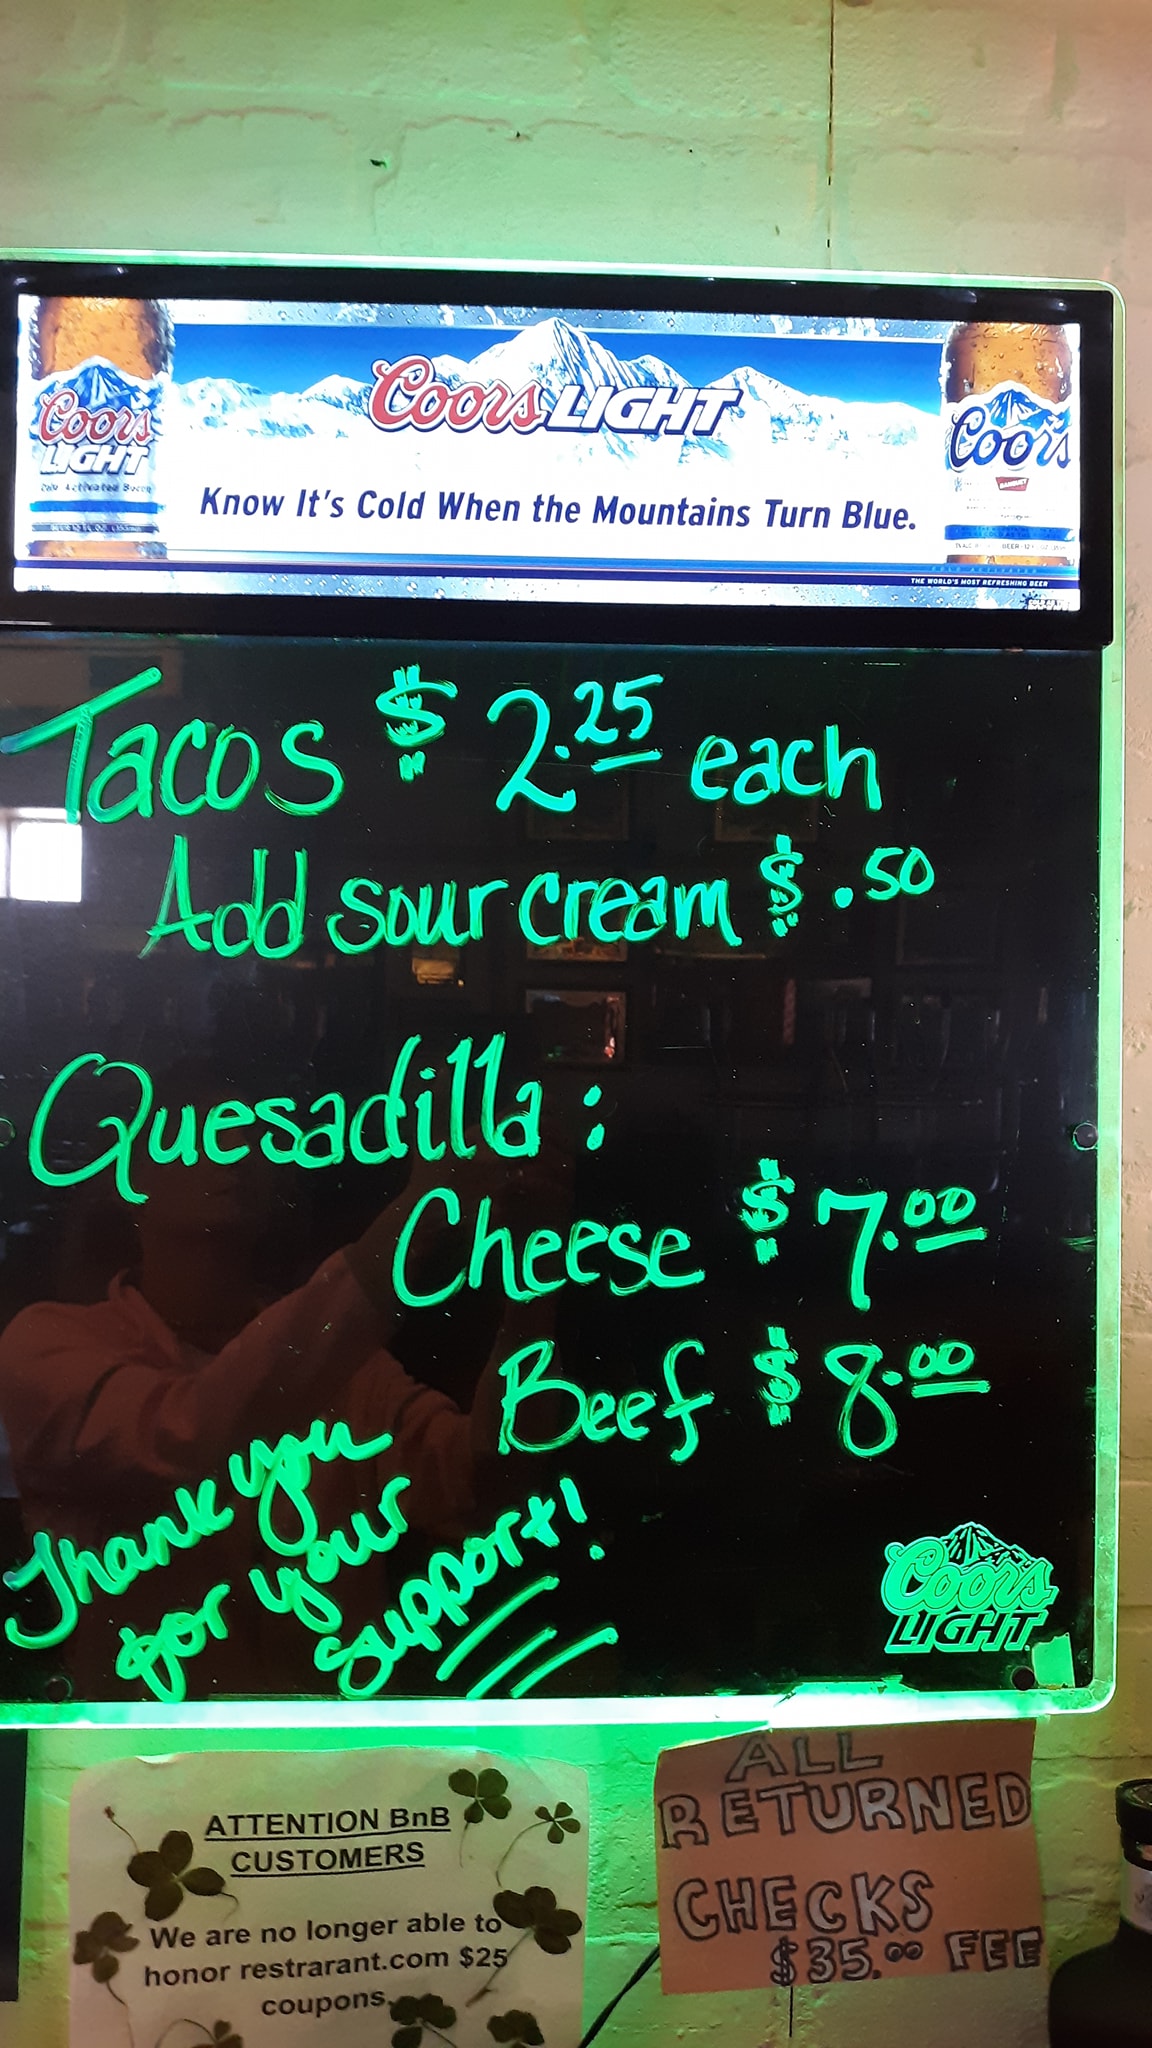 Coors LIGHT
Coors
LIGHT
Coors
BANQUET
Know It's Cold When the Mountains Turn Blue.
THE WORLD'S MOST REFRESHING BEER
Tacos $2.25 each
Add sour cream $.50
Quesadilla:
Cheese $7.00
Beef $8.00
Thank you
for your
support!
Coors
LIGHT
ATTENTION BnB
CUSTOMERS
We are no longer able to
honor restrarant.com $25
coupons.
ALL
RETURNED
CHECKS
$35.00 FEE